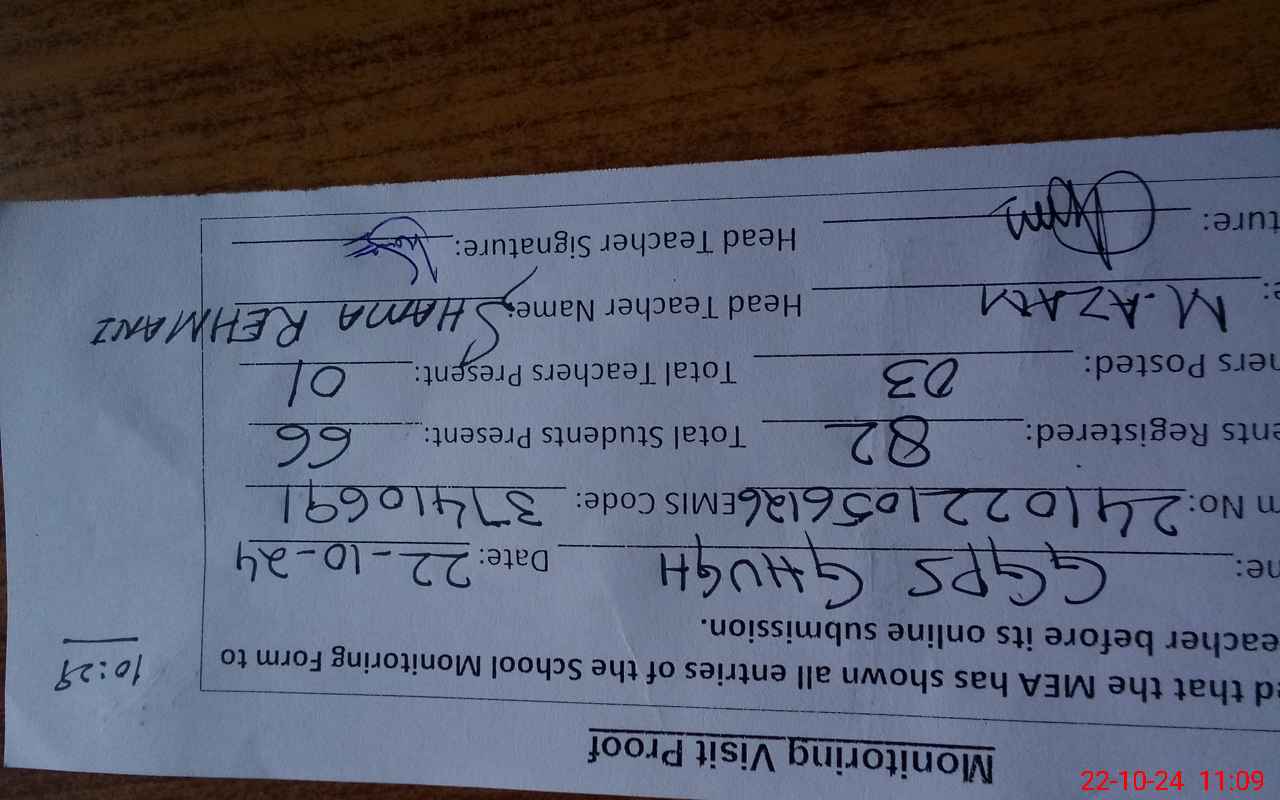 Monitoring Visit Proof
d that the MEA has shown all entries of the School Monitoring Form to
eacher before its online submission.
10:29
ne: GGPS GHUGH Date: 22-10-24
n No: 2410221056126 EMIS Code: 37410691
ents Registered: 82 Total Students Present: 66
ners Posted: 03 Total Teachers Present: 01
e: M.AZAM Head Teacher Name: SHAMA REHMANI
ture: Head Teacher Signature:
22-10-24 11:09